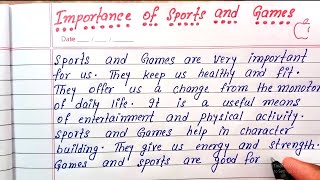 Importance of Sports and Games
Date
Sports and Games are very important
for us. They keep us healthy and fit.
They offer us a change from the monoton
of daily life. It is a useful means
of entertainment and physical activity.
Sports and Games help in character
building. They give us energy and strength.
Games and sports are good for